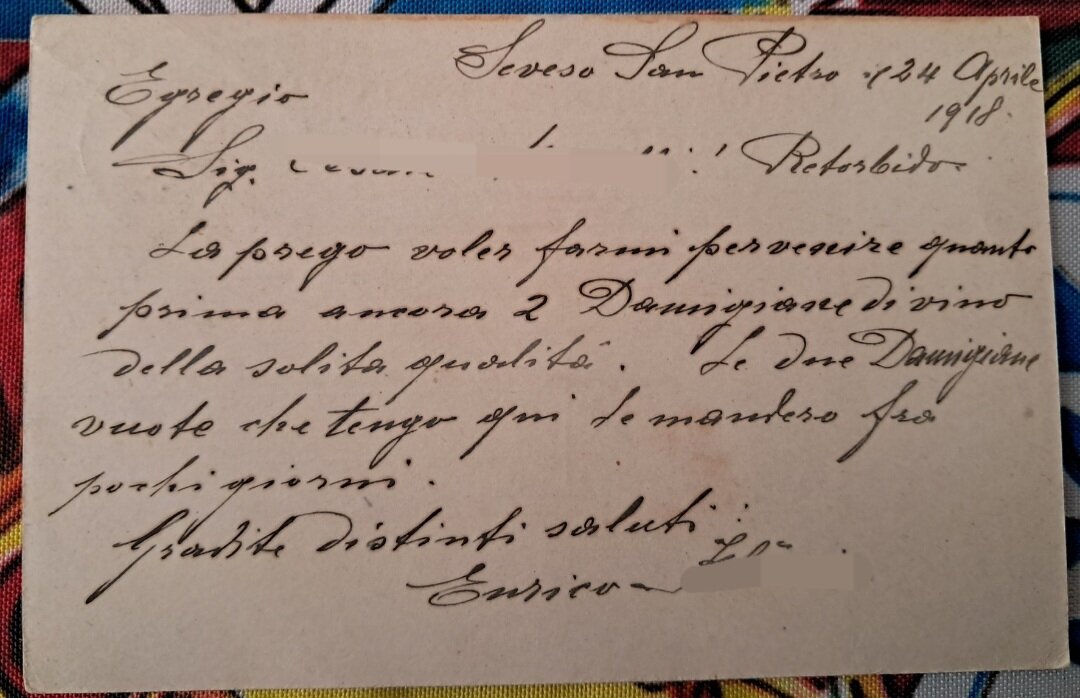 Seveso San Pietro il 24 Aprile
1918.
Egregio
Sig. Retorbido
La prego voler farmi pervenire quanto
prima ancora 2 Damigiane di vino
della solita qualità. Le due Damigiane
vuote che tengo qui le mandero fra
pochi giorni.
Gradite distinti saluti
Enrico